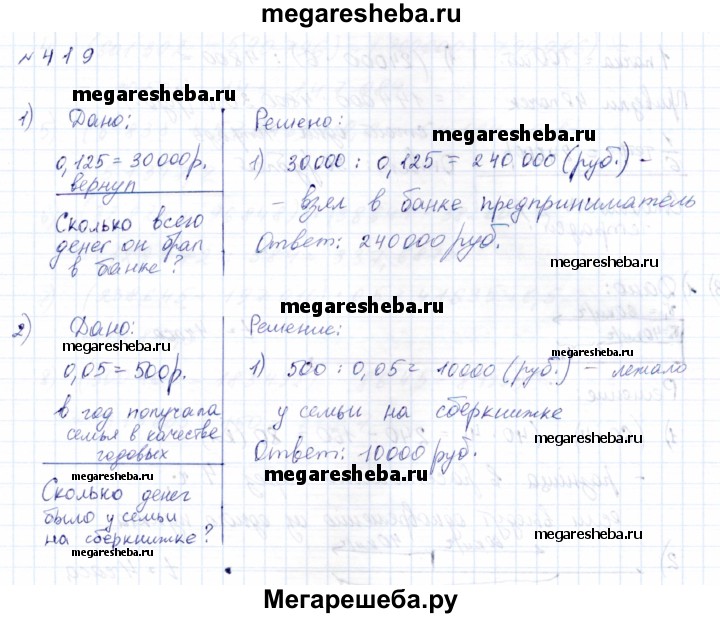 megaresheba.ru
№ 419
megaresheba.ru
1) Дано:
0,125 = 30000р.
вернул
Сколько всего
денег он брал
в банке?
Решено:
megaresheba.ru
1) 30000 : 0,125 = 240 000 (руб.) –
– взял в банке предприниматель
Ответ: 240000 руб.
megaresheba.ru
megaresheba.ru
2) Дано:
megaresheba.ru
0,05 = 500р.
в год получала
семья в качестве
годовых
megaresheba.ru
Сколько денег
было у семьи
на сберкнижке?
megaresheba.ru
Решение:
megaresheba.ru
1) 500 : 0,05 = 10000 (руб.) – лежало
у семьи на сберкнижке
megaresheba.ru
Ответ: 10000 руб.
megaresheba.ru
megaresheba.ru
Мегарешеба.ру